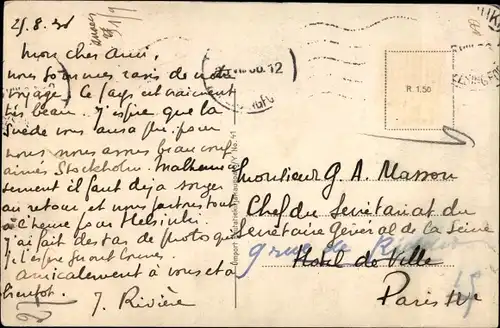 25.8.36
Mon cher ami,
nous sommes ravis de notre
voyage. Ce pays est vraiment
très beau. J'espère que la
Suède vous aussi plu. pour
nous nous avons beaucoup
aimés Stockholm. Malheureu
sement il faut déjà songer
au retour et nous partons tout
à l'heure pour Helsinki.
J'ai fait des tas de photo que
j'espère seront bonnes.
amicalement à vous et à
bientôt.
J. Rivière
R. 1,50
Monsieur G. A. Masson
Chef du Secrétariat du
Secrétaire Général de la Seine
Hôtel de Ville
Paris